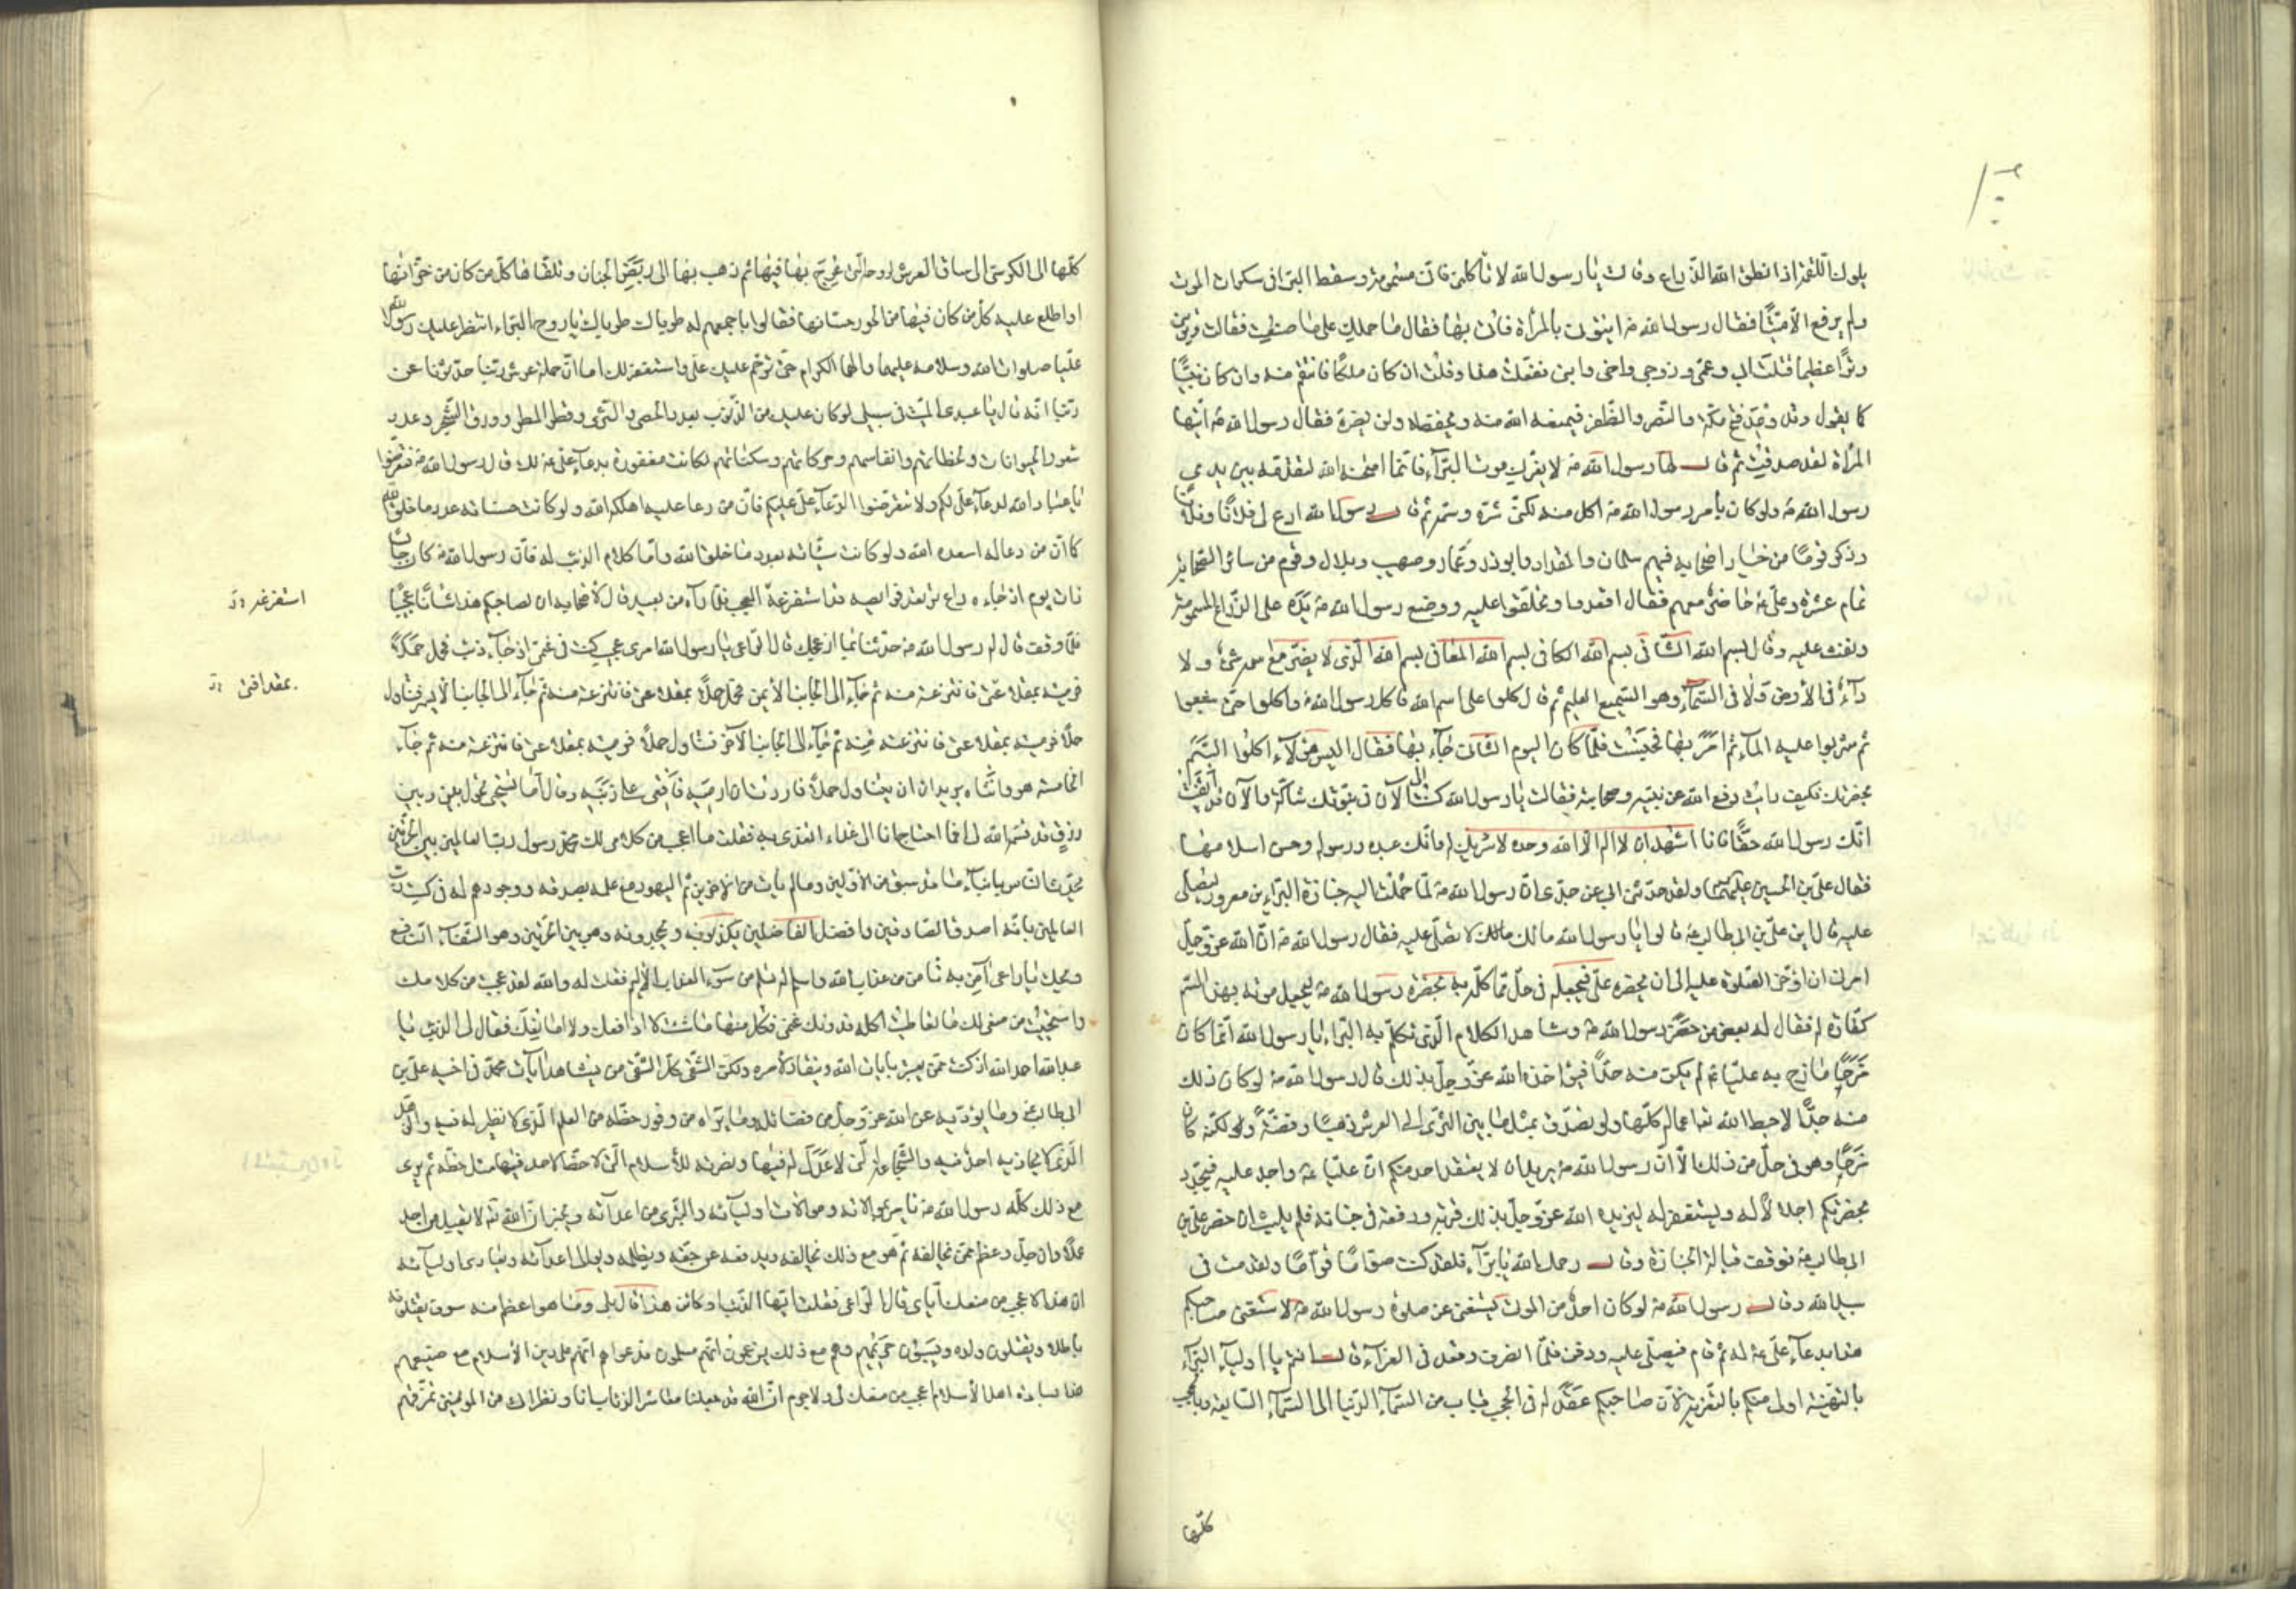 يلوك اللقمة اذ انطق الله الذراع وقالت يا رسول الله لا تأكلني فاني مسمومة وسقط البراء في سكرات الموت
ولم يرفع الا ميتا فقال رسول الله ص ايتوني بالمرأة فأتي بها فقال ما حملك على ما صنعت فقالت وترتني
وترا عظيما قتلت ابي وعمي وزوجي واخي وابني ففعلت هذا وقلت ان كان ملكا فانتقم منه وان كان نبيا
كما يقول وقد وعد فتح مكة والنصر والظفر فيمنعه الله منه ويحفظه ولن يضره فقال رسول الله ص ايتها
المرأة لقد صدقت ثم قال لها رسول الله ص لا يضرك موت البراء فانما امتحنه الله لتقدمه بين يدي
رسول الله ص ولو كان بأمر رسول الله ص اكل منه لكفي شره وسمه ثم قال رسول الله ادع لي فلانا وفلانا
وذكر قوما من خيار اصحابه فيهم سلمان والمقداد وابو ذر وعمار وصهيب وبلال وقوم من سائر الصحابة
تمام عشرة وعلي ع حاضر معهم فقال اقعدوا وتحلقوا عليه ووضع رسول الله ص يده على الذراع المسمومة
ونفث عليه وقال بسم الله الشافي بسم الله الكافي بسم الله المعافي بسم الله الذي لا يضر مع اسمه شيء ولا
داء في الأرض ولا في السماء وهو السميع العليم ثم قال كلوا على اسم الله فاكل رسول الله ص واكلوا حتى شبعوا
ثم شربوا عليه الماء ثم امر بها فحبست فلما كان اليوم الثاني جاء بها فقال اليس هؤلاء اكلوا السم
بحضرتك فكيف رأيت دفع الله عن نبيه وصحابته فقالت يا رسول الله كنت الى الآن في نبوتك شاكة والآن قد ايقنت
انك رسول الله حقا فانا اشهد ان لا اله الا الله وحده لا شريك له وانك عبده ورسوله وحسن اسلامها
فقال علي بن الحسين عليهما السلام ولقد حدثني ابي عن جدي ان رسول الله ص لما حملت اليه جنازة البراء بن معرور ليصلي
عليه قال اين علي بن ابي طالب ع قالوا يا رسول الله مالك مالك لا تصلي عليه فقال رسول الله ص ان الله عز وجل
امرني ان اؤخر الصلوة عليه الى ان يحضره علي فيجعله في حل مما كلمه به بحضرة رسول الله ص ليجعل موته بهذا السم
كفارة له فقال له بعض من حضر رسول الله ص وشاهد الكلام الذي تكلم به البراء يا رسول الله انما كان
مزحا مازح به عليا ع لم يكن منه جدا فيؤاخذه الله عز وجل بذلك قال رسول الله ص لو كان ذلك
منه جدا لاحبط الله تعالى اعماله كلها ولو تصدق بمثل ما بين الثرى الى العرش ذهبا وفضة ولكنه كان
مزحا وهو في حل من ذلك الا ان رسول الله ص يريد ان لا يعتقد احد منكم ان عليا ع واجد عليه فيجدد
بحضرتكم اجلالا له ويستغفر له ليزيده الله عز وجل بذلك قربة ورفعة في جنانه فلم يلبث ان حضر علي بن
ابي طالب ع فوقف قبالة الجنازة وقال رحمك الله يا براء فلقد كنت صواما قواما ولقد مت في
سبيل الله وقال رسول الله ص لو كان احد من الموتى يستغني عن صلوة رسول الله ص لاستغنى صاحبكم
هذا بدعاء علي ع له ثم قام فيصلي عليه ودفن فلما انصرف وقعد في العزاء قال انتم يا اولياء البراء
بالتهنية اولى منكم بالتعزية لان صاحبكم عقد له في الحجب قباب من السماء الدنيا الى السماء السابعة وبالحجب
كلها
كلها الى الكرسي الى ساق العرش لروحه التي عرج بها فيها ثم ذهب بها الى ربض الجنان وتلقاها كل من كان من خزانها
واطلع عليه كل من كان فيها من الحور حسانها فقالوا باجمعهم له طوباك طوباك يا روح البراء انتظر عليك رسول الله
عليا صلوات الله وسلامه عليهما وآلهما الكرام حتى ترحم عليك علي واستغفر لك اما ان حملة عرش ربنا حدثونا عن
ربنا انه قال يا عبدي الميت في سبيلي لو كان عليك من الذنوب بعدد الحصى والثرى وقطر المطر وورق الشجر وعدد
شعور الحيوانات ولحظاتهم وانفاسهم وحركاتهم وسكناتهم لكانت مغفورة بدعاء علي ع لك قال رسول الله ص فتعرضوا
يا عباد الله لدعاء علي لكم ولا تتعرضوا لدعاء علي عليكم فان من دعا عليه اهلكه الله ولو كانت حسناته عدد ما خلق الله
كما ان من دعا له اسعده الله ولو كانت سيئاته بعدد ما خلق الله واما كلام الذئب له فان رسول الله ص كان جالسا
ذات يوم اذ جاءه راع ترتعد فرائصه قد استفزعه العجب فلما رآه من بعيد قال لاصحابه ان لصاحبكم هذا شأنا عجيبا
فلما وقف قال له رسول الله ص حدثنا بما ازعجك قال الراعي يا رسول الله امر عجيب كنت في غنمي اذ جاء ذئب فحمل حملا
فرميته بمقلاعي فانتزعته منه ثم جاء الى الجانب الأيمن فحمل حملا بمقلاعي فانتزعته منه ثم جاء الى الجانب الأيسر فتناول
حملا فرميته بمقلاعي فانتزعته منه ثم جاء الى الجانب الآخر فتناول حملا فرميته بمقلاعي فانتزعته منه ثم جاء
الخامسة هو وانثاه يريدان ان يتناول حملا فاردت ان ارميه فاقعى على ذنبه وقال اما تستحيي تحول بيني وبين
رزق قد قسمه الله لي افما احتاج انا الى غذاء اتغذى به فقلت ما اعجب من كلامي لك محمد رسول رب العالمين بين الحرتين
يحدث الناس بانباء ما قد سبق من الاولين وما لم يأت من الآخرين ثم اليهود مع علمهم بصدقه ووجودهم له في كتب رب
العالمين بانه اصدق الصادقين وافضل الفاضلين يكذبونه ويجحدونه وهو بين الحرتين وهو الشفاء النافع
ويحك يا راعي آمن به تأمن من عذاب الله واسلم له تسلم من سوء العذاب الأليم فقلت له والله لقد عجبت من كلامك
واستحييت من منعي لك ما تعاطيت اكله فدونك غنمي فكل منها ما شئت لا ادافعك ولا امانعك فقال لي الذئب يا
عبد الله احمد الله اذ كنت ممن يعتبر بآيات الله وينقاد لأمره ولكن الشقي كل الشقي من يشاهد آيات محمد في اخيه علي بن
ابي طالب ع وما يؤديه عن الله عز وجل من فضائله وما يراه من وفور حظه من العلم الذي لا نظير له فيه والزهد
الذي لا يحاذيه احد فيه والشجاعة التي لا عدل له فيها ونصرته للأسلام التي لا حظ لاحد فيها مثل حظه ثم يرى
مع ذلك كله رسول الله ص يأمر بموالاته وموالاة اوليائه والتبري من اعدائه ويخبر ان الله تعالى لا يقبل من احد
عملا وان جل وعظم ممن يخالفه ثم هو مع ذلك يخالفه ويدفعه عن حقه ويظلمه ويوالي اعدائه ويعادي اوليائه
ان هذا لاعجب من منعك اياي قال الراعي فقلت ايها الذئب او كائن هذا قال بلى وما هو اعظم منه سوف يقتلونه
باطلا ويقتلون ولده ويسبون حريمهم وهم مع ذلك يزعمون انهم مسلمون فدعواهم انهم على دين الأسلام مع صنيعهم
هذا بسادة اهل الأسلام اعجب من منعك لي ولا جرم ان الله قد جعلنا معاشر الذئاب انا ونظرائي من المؤمنين نمزقهم
استفزعه
بمقلاعي